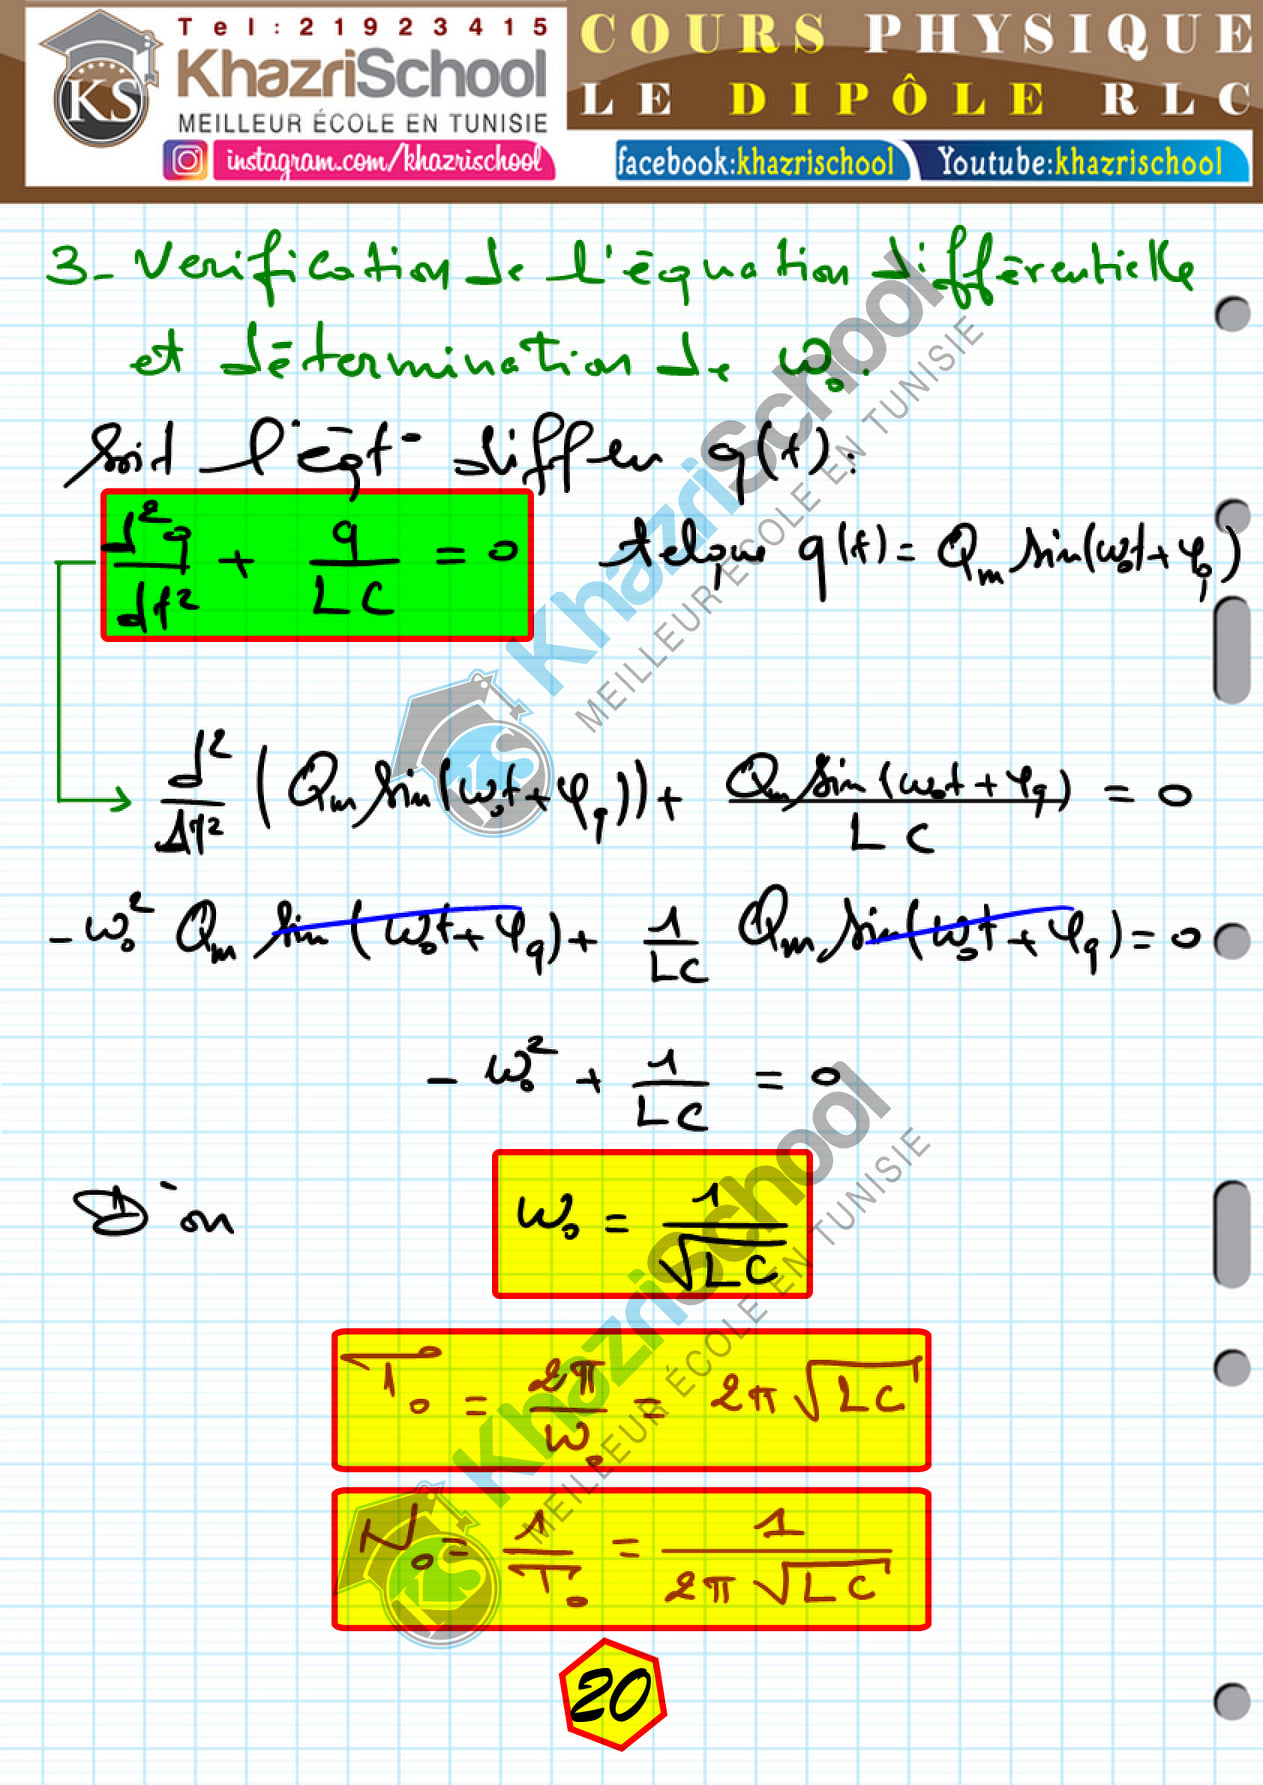 Tel: 21923415
KhazriSchool
MEILLEUR ÉCOLE EN TUNISIE
KS
instagram.com/khazrischool
COURS PHYSIQUE
LE DIPÔLE RLC
facebook:khazrischool
Youtube:khazrischool
3- Verification de l'équation différentielle
et détermination de ω₀.
Soit l'éqt° diff en q(t):
d²q/dt² + q/LC = 0 telque q(t) = Qm sin(ω₀t + φq)
d²/dt² (Qm sin(ω₀t + φq)) + Qm sin(ω₀t + φq)/LC = 0
- ω₀² Qm sin(ω₀t + φq) + 1/LC Qm sin(ω₀t + φq) = 0
- ω₀² + 1/LC = 0
D'on ω₀ = 1/√LC
T₀ = 2π/ω₀ = 2π√LC
N₀ = 1/T₀ = 1/2π√LC
20
KhazriSchool
MEILLEUR ÉCOLE EN TUNISIE
KS
KhazriSchool
MEILLEUR ÉCOLE EN TUNISIE
KS